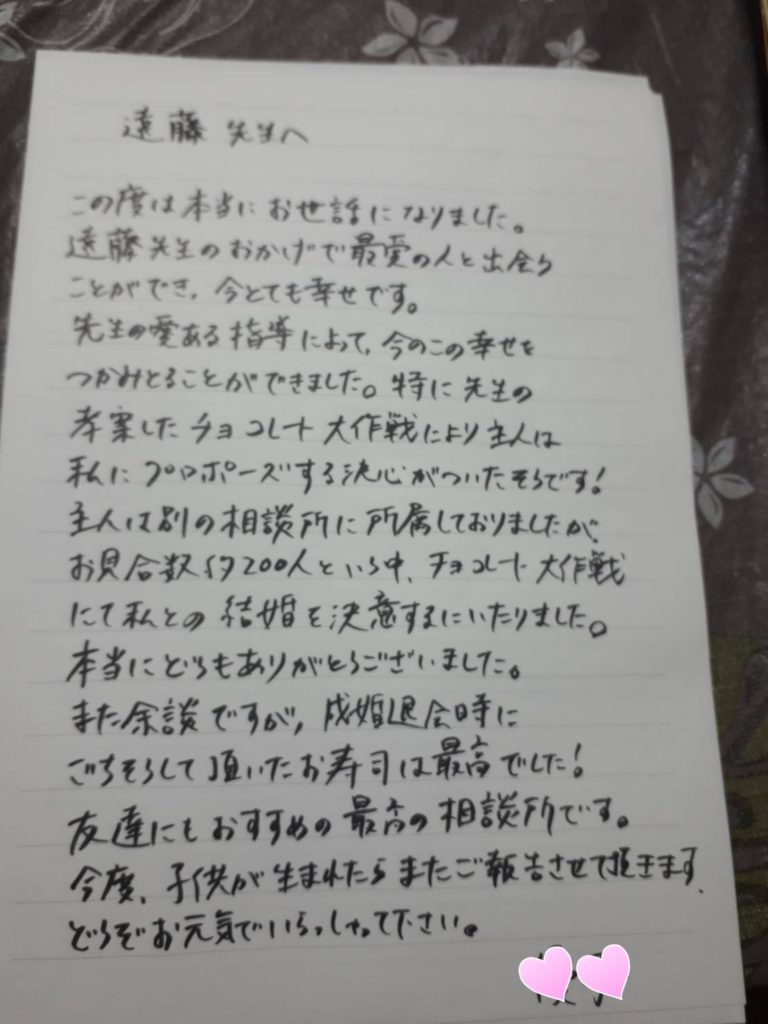 遠藤 先生へ
この度は本当にお世話になりました。
遠藤先生のおかげで最愛の人と出会う
ことができ、今とても幸せです。
先生の愛ある指導によって、今のこの幸せを
つかみとることができました。特に先生の
考案したチョコレート大作戦により主人は
私にプロポーズする決心がついたそうです!
主人は別の相談所に所属しておりましたが、
お見合数約200人という中、チョコレート大作戦
にて私との結婚を決意するにいたりました。
本当にどうもありがとうございました。
また余談ですが、成婚退会時に
ごちそうして頂いたお寿司は最高でした!
友達にもおすすめの最高の相談所です。
今度、子供が生まれたらまたご報告させて頂きます、
どうぞお元気でいらっしゃって下さい。